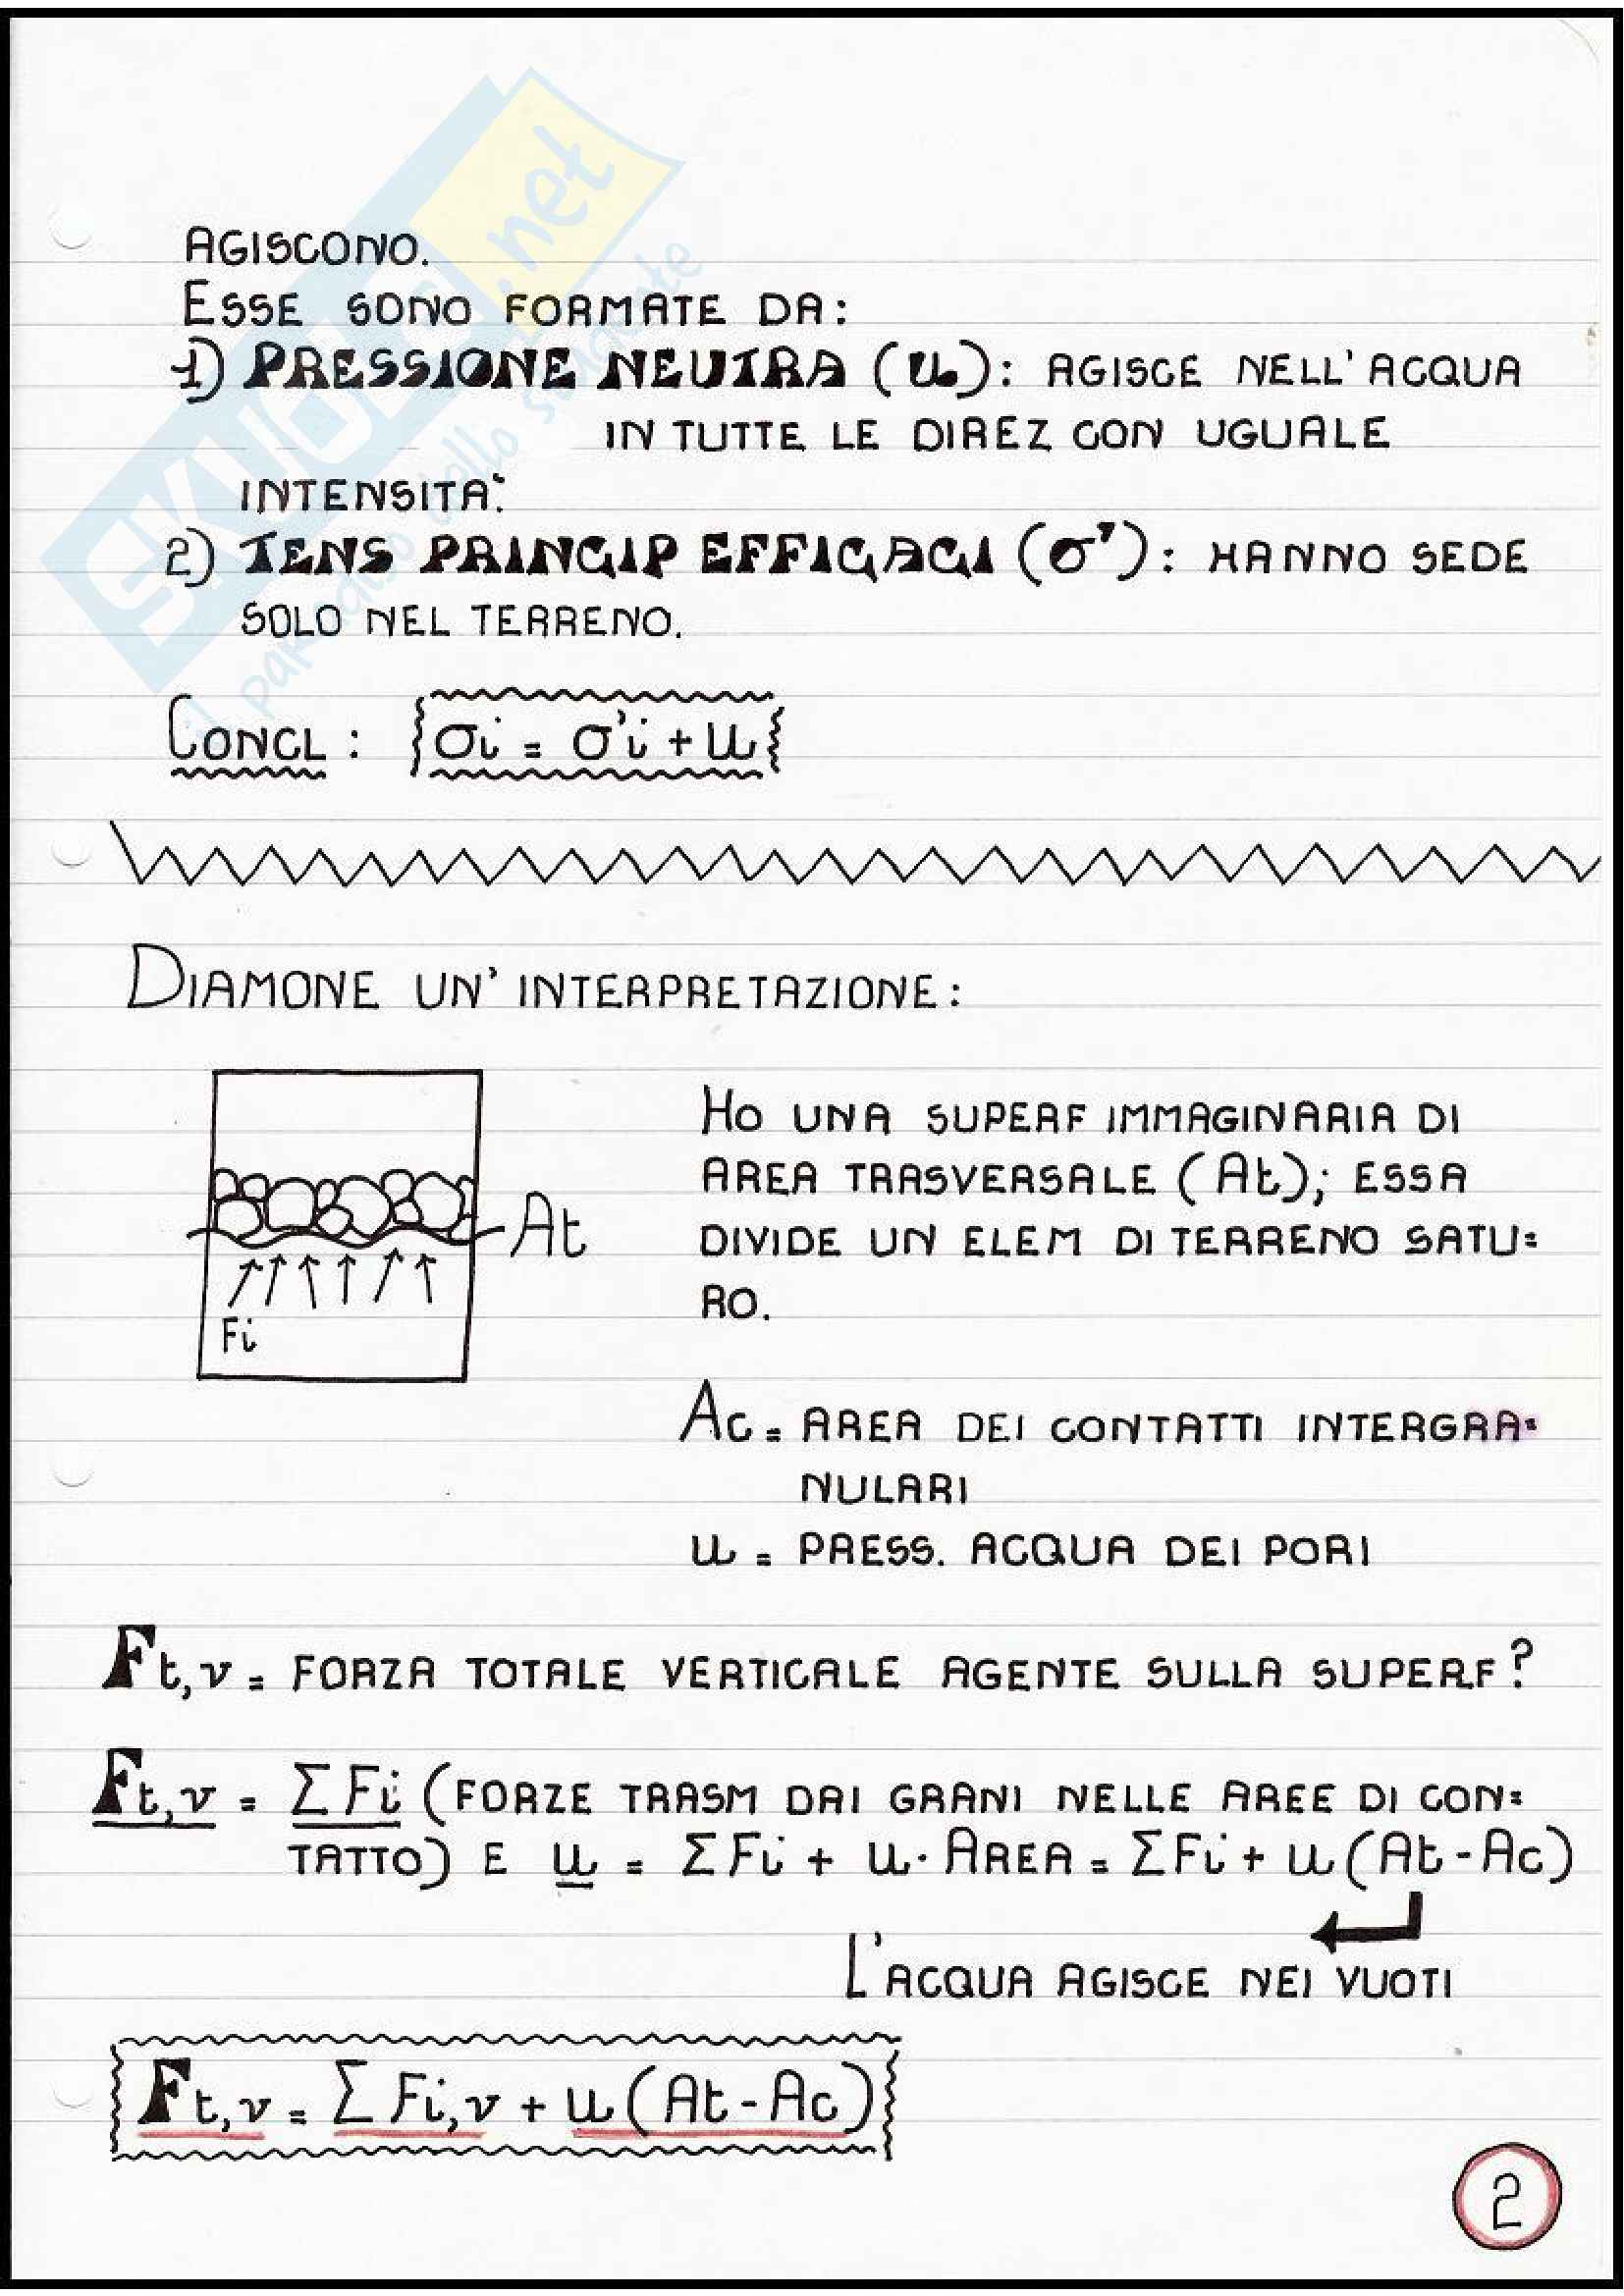 AGISCONO.
ESSE SONO FORMATE DA:
1) PRESSIONE NEUTRA (u): AGISCE NELL'ACQUA
IN TUTTE LE DIREZ CON UGUALE
INTENSITA'.
2) TENS PRINCIP EFFICACI (σ'): HANNO SEDE
SOLO NEL TERRENO.
CONCL: σi = σ'i + u
DIAMONE UN'INTERPRETAZIONE:
HO UNA SUPERF IMMAGINARIA DI
AREA TRASVERSALE (At); ESSA
DIVIDE UN ELEM DI TERRENO SATU=
RO.
At
Fi
Ac = AREA DEI CONTATTI INTERGRA=
NULARI
u = PRESS. ACQUA DEI PORI
Ft,v = FORZA TOTALE VERTICALE AGENTE SULLA SUPERF?
Ft,v = ΣFi (FORZE TRASM DAI GRANI NELLE AREE DI CON=
TATTO) E u = ΣFi + u·AREA = ΣFi + u(At-Ac)
L'ACQUA AGISCE NEI VUOTI
Ft,v = ΣFi,v + u(At-Ac)
2
SKUOLA.net
il paradiso dello studente